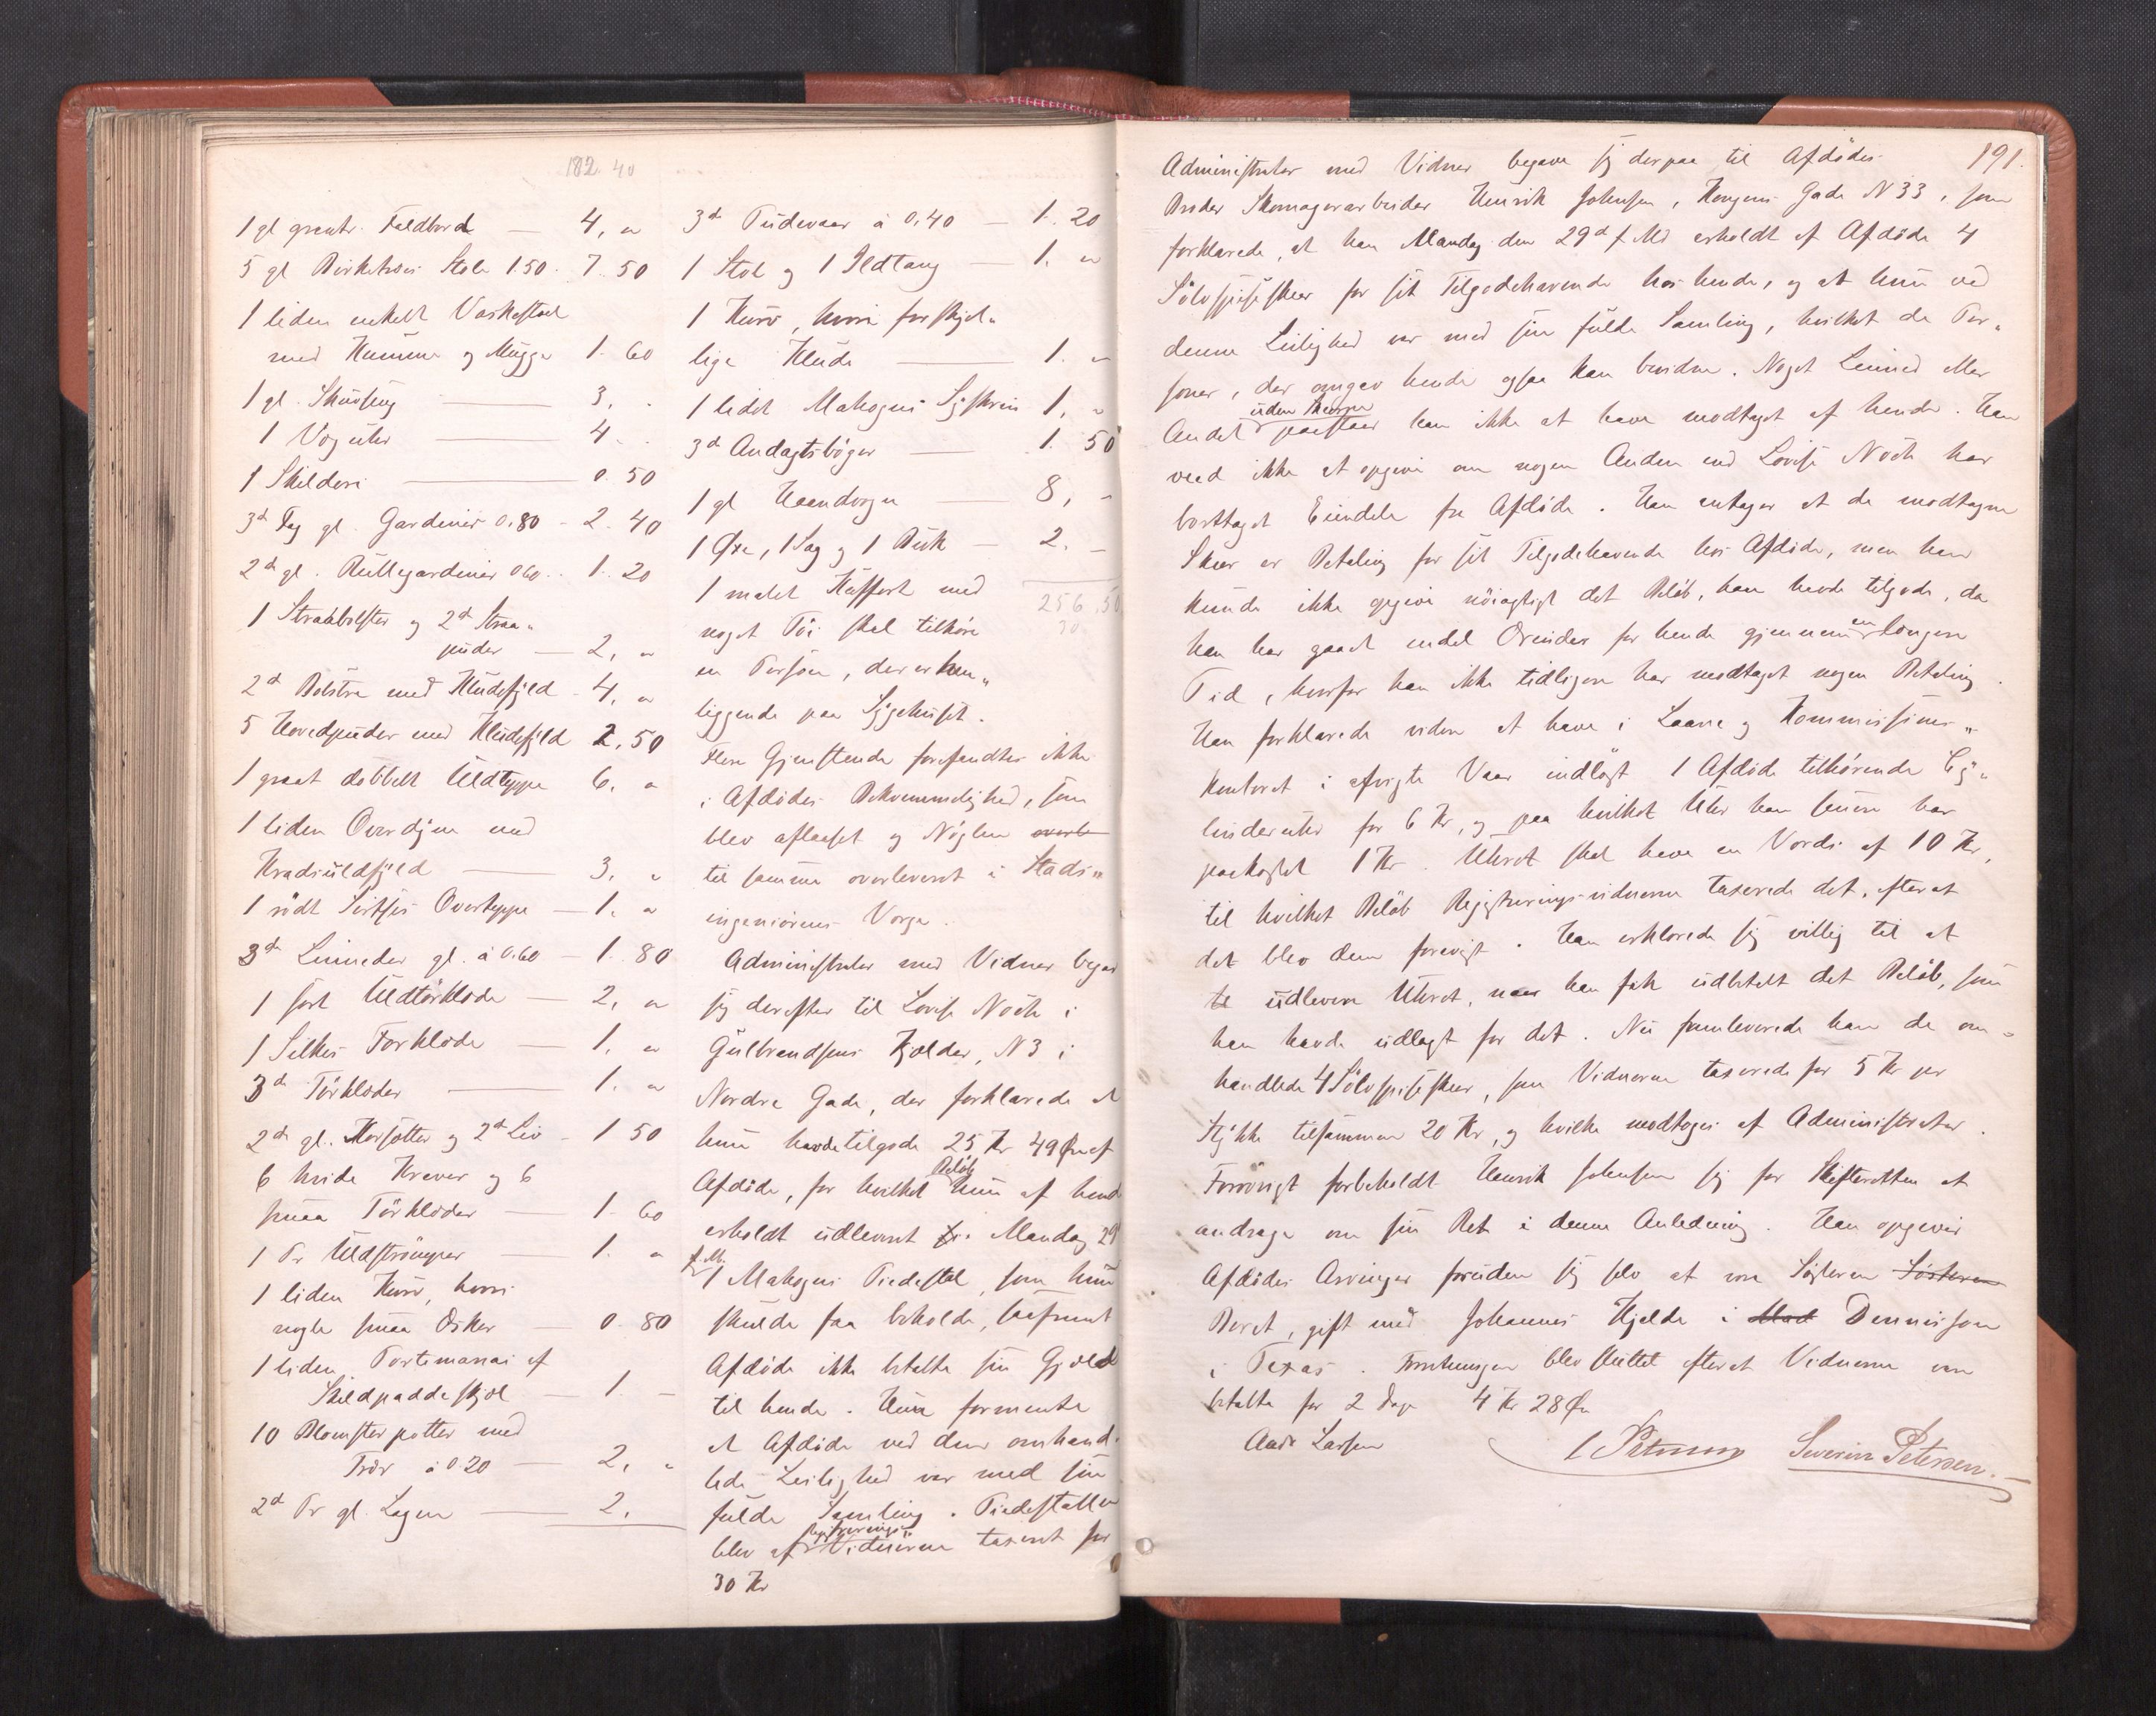 182 40
1 gl grantr. Faldbord — 4, "
5 gl Birketræs Stole 1.50. 7. 50
1 liden enkelt Vaskestol
med Kumme og Mugge 1. 60
1 gl. Skuvseng — 3. "
1 Væguhr — 4 "
1 Skilderi — 0. 50
3d Fag gl. Gardiner 0.80 - 2. 40
2de gl. Rullegardiner 0.60 .. 1. 20
1 Straabolster og 2de Straa„
puder — 2, "
2d Bolstre med Kludefyld - 4, "
5 Hovedpuder med Kludefyld 2,50
1 graat dobbelt Uldteppe 6. "
1 liden Overdyne med
Kraduldfyld — 3. "
1 rødt Sirtses Overteppe — 1. "
3de Linneder gl. á 0.60 — 1. 80
1 sort Uldtørklæde — 2, "
1 Silkes Forklæde — 1. "
3d Tørklæder — 1. "
2de gl. Korsetter og 2de Liv - 1 50
6 hvide Kraver og 6
smaa Tørklæder — 1. 60
1 Pr Uldstrømper — 1. "
1 liden Kurv, hvori
nogle smaa Æsker — 0. 80
1 liden Portemonnai af
Skildpaddeskjæl — 1. —
10 Blomsterpotter med
Trær á 0.20 — 2. "
2d Pr gl. Lagen — 2.
3d Pudevaar á 0.40 — 1. 20
1 Stol og 1 Ildtang — 1. "
1 Kurv, hvori forskjel„
lige Klude — 1. "
1 lidet Mahogni Syskrin 1, "
3d Andagtsbøger — 1. 50
1 gl Haandvogn — 8, "
1 Øxe, 1 Sag og 1 Buk — 2. —
256,50
30
1 malet Kuffert med
noget Tøi skal tilhøre
en Person, der er hen„
liggende paa Sygehuset.
Flere Gjenstande forefandtes ikke
i Afdødes Bekvemmelighed, som
blev aflaaset og Nøglen overle
til samme overleveret i Stads„
ingeniørens Værge.
Administrator med Vidner begav
sig derefter til Lovise Nöck i
Gulbrandsens Kjælder, N 3 i
Nordre Gade, der forklarede at
hun havde tilgode 25 Kr 49 Øre af
Afdøde, for hvilket Beløb hun af hende
erholdt udleveret Mandag 29
f. M. 1 Mahogni Piedestal, som hun
skulde faa beholde, saafremt
Afdøde ikke betalte sin Gjæld
til hende. Hun formente
at Afdøde ved den omhand„
lede Leilighed var med sin
fulde Samling. Piedestallen
blev af Registrerings„Vidnerne taxeret for
30 Kr
191.
Administrator med Vidner begave sig derpaa til Afdødes
Broder Skomagerarbeider Henrik Johnsen, Kongens Gade N 33, som
forklarede, at han Mandag den 29d f. Md erholdt af Afdøde 4
Sølvspiseskeer for sit Tilgodehavende hos hende, og at hun ved
denne Leilighed var med sin fulde Samling, hvilket de Per„
soner, der omgav hende ogsaa kan bevidne. Noget Linned eller
Andet uden Skeerne paastaar han ikke at have modtaget af hende. Han
veed ikke at opgive om nogen Anden end Lovise Nöck har
borttaget Eiendele fra Afdøde. Han antager at de modtagne
Skeer er Betaling for sit Tilgodehavende hos Afdøde, men han
kunde ikke opgive nøiagtigt det Beløb, han havde tilgode, da
han har gaaet endel Ærinder for hende gjennem en længere
Tid, hvorfor han ikke tidligere har modtaget nogen Betaling.
Han forklarede videre at have i Laane og Kommissions„
kontoret i afvigte Vaar indløst 1 Afdøde tilhørende Cy„
linderuhr for 6 Kr, og paa hvilket Uhr han senere har
paakostet 1 Kr. Uhret skal have en Værdi af 10 Kr,
til hvilket Beløb Registreringsvidnerne taxerede det, efterat
det blev dem forevist. Han erklærede sig villig til at
te udlevere Uhret, naar han fik udbetalt det Beløb, som
han havde udlagt for det. Nu fremleverede han de om„
handlede 4 Sølvspiseskeer, som Vidnerne taxerede for 5 Kr per
Stykke tilsammen 20 Kr, og hvilke modtoges af Administrator.
Forøvrigt forbeholdt Henrik Johnsen sig for Skifteretten at
andrage om sin Ret i denne Anledning. Han opgiver
Afdødes Arvinger foruden sig selv at være Søsteren Søsteren
Beret, gift med Johannes Kjelde i Mad Dennisson
i Texas. Forretningen blev sluttet efterat Vidnerne vare
betalte for 2 Dage 4 Kr 28 Øre
Aadr Larsen
L Petersen Severin Petersen.